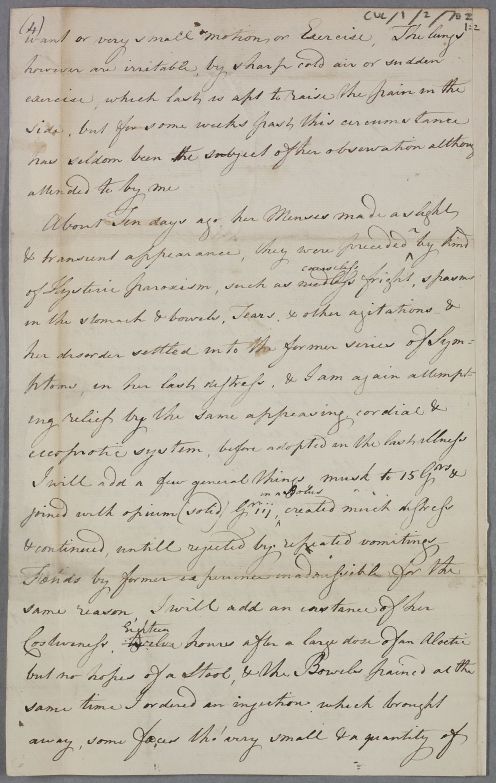 (4)
CUL/1/2/702
1:2
want or very small motion, or Exercise, The lungs
however are irritable, by sharp cold air or sudden
exercise, which last is apt to raise the pain in the
side, but for some weeks past, this circumstance
has seldom been the subject of her observation althoug
attended to by me
About Ten days ago her Menses made a slight
& transient appearance, they were preceded by kind
of Hysteric paroxism, such as causeless fright, spasms
in the stomach & bowels, Tears, & other agitations &
her disorder settled into the former series of Sym=
ptoms, in her last distress, & I am again attempt-
ing relief by the same appeasing cordial &
eccoprotic system, before adopted in the last illness
I will add a few general things musk to 15 Grs &
joined with opium (solid) Gr iij, in a Bolus created much distress
& continued, untill rejected by repeated vomitings
Fœtids by former experience inadmissible for the
same reason I will add an instance of her
Costiveness Eighteen hours after a large dose of an Aloetic
but no hopes of a Stool, & the Bowels pained at the
same time I ordered an injection which brought
away, some fæces tho' very small & a quantity of